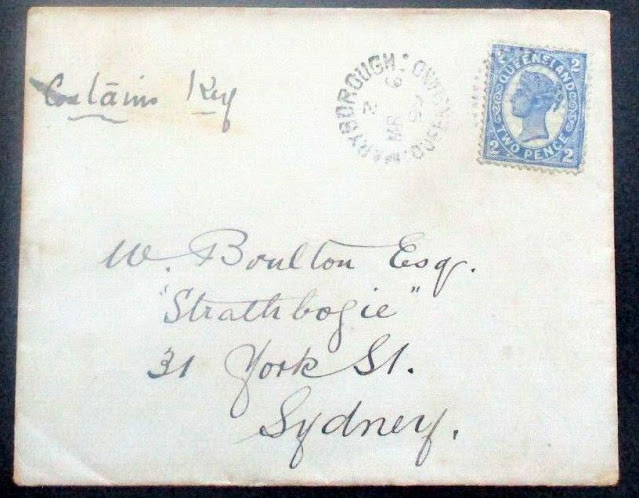 Contains Key
MARYBOROUGH. QUEENSLAND.
QUEENSLAND
TWO PENCE
2 2
2 2
W. Boulton Esq.
"Strathbogie"
31 York St.
Sydney.